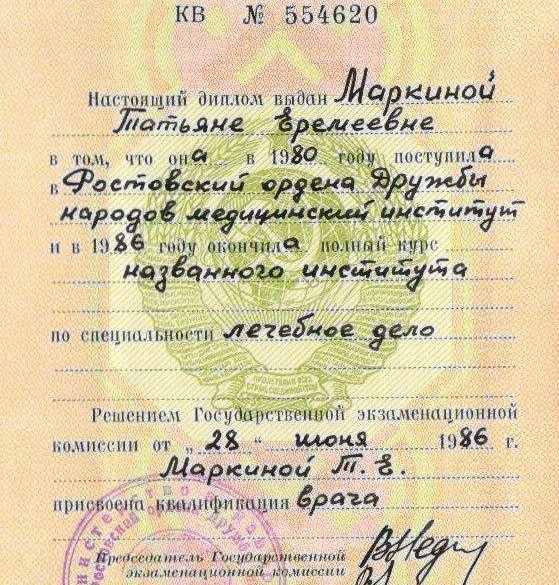 КВ № 554620
Настоящий диплом выдан Маркиной
Татьяне Еремеевне
в том, что она в 1980 году поступила
в Ростовский ордена Дружбы
народов медицинский институт
и в 1986 году окончила полный курс
названного института
по специальности лечебное дело
Решением Государственной экзаменационной
комиссии от „28“ июня 1986 г.
Маркиной Т. Е.
присвоена квалификация врача
Председатель Государственной
экзаменационной комиссии